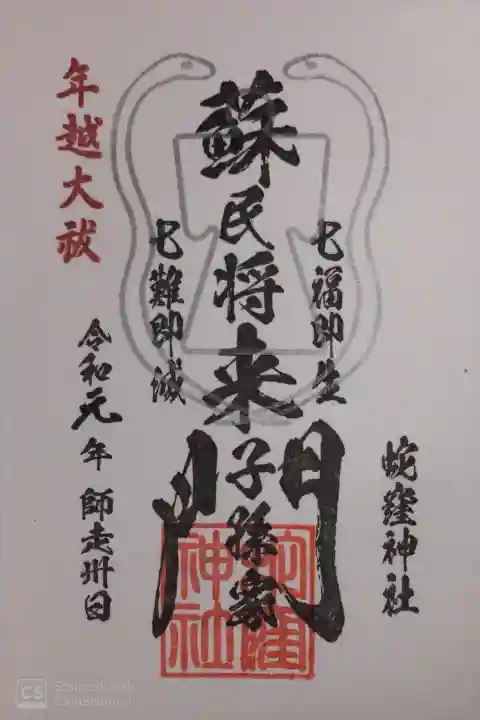 蛇窪神社
七福即生
蘇民将来子孫家門
七難即滅
年越大祓
令和元年 師走卅日
蛇窪神社
CS Scanned with CamScanner